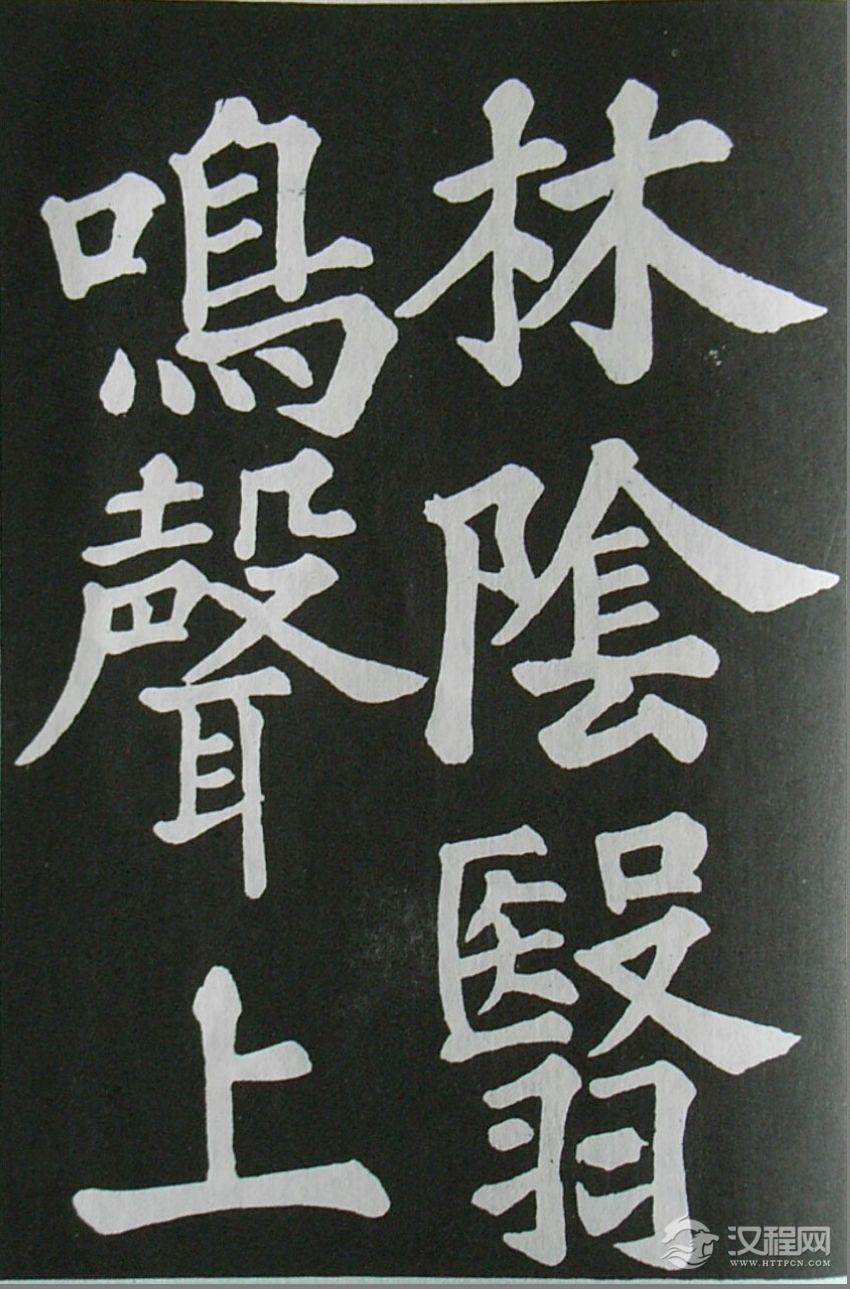 林陰翳
鳴聲上
汉程网
WWW.HTTPCN.COM